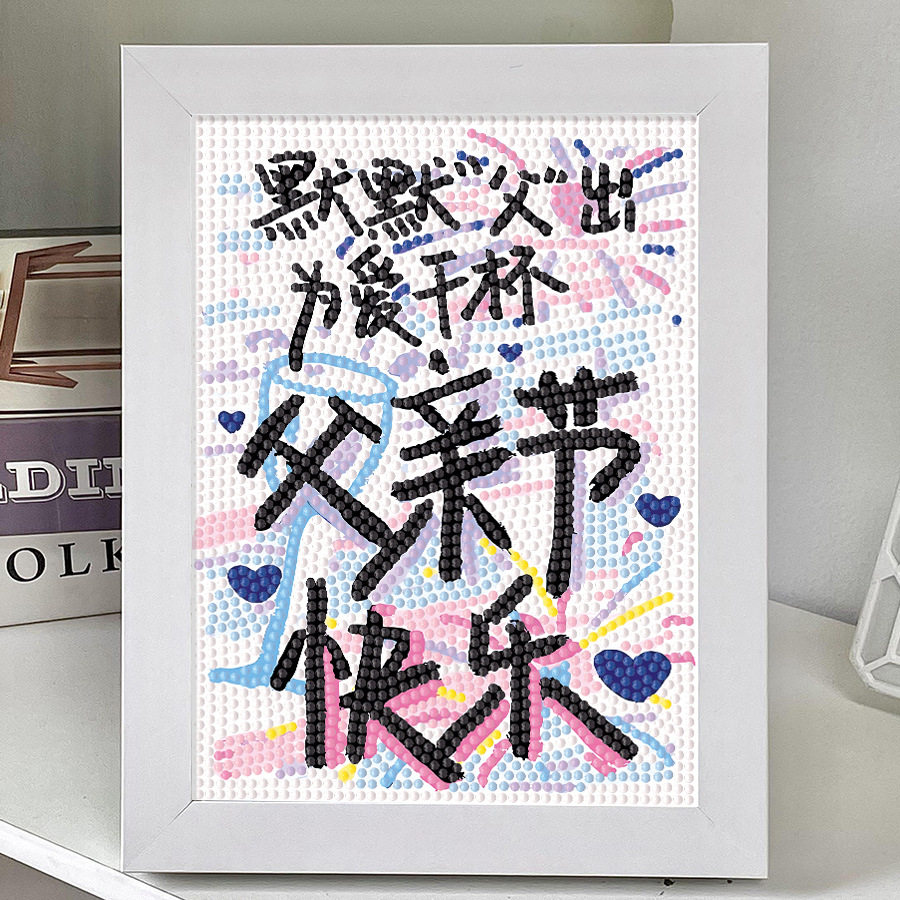 默默“父”出
为爱干杯
父亲节
快乐